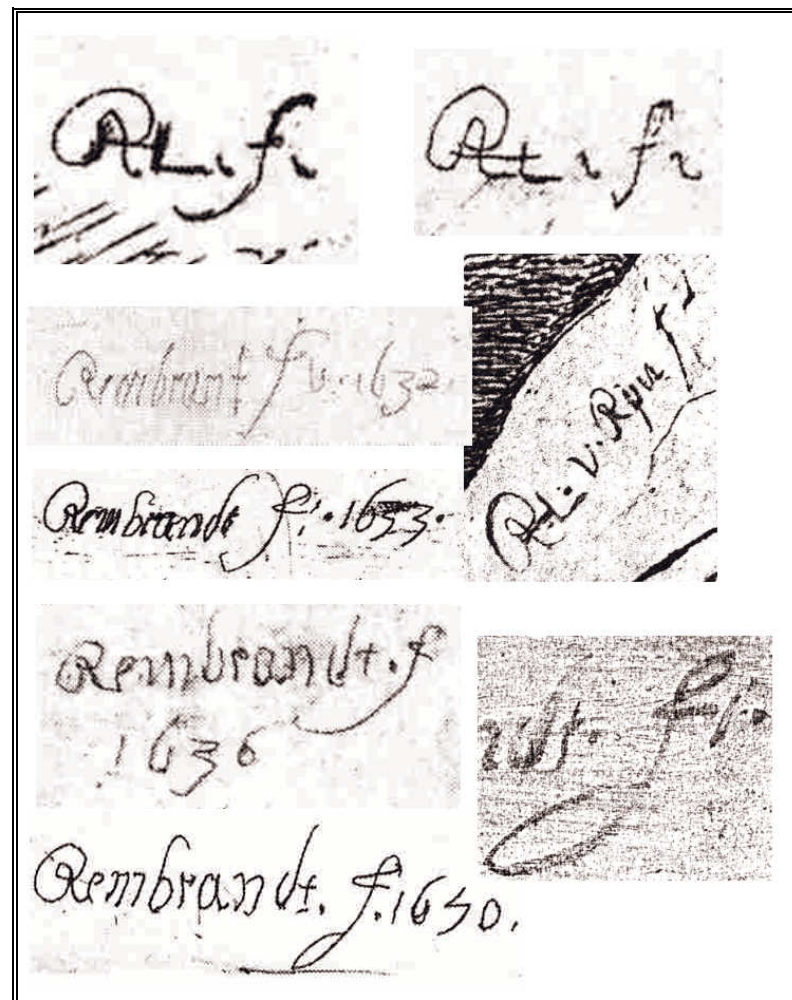 RL. f.
RL. f.
Rembrant f. 1632.
RL. v. Ryn f.
Rembrandt f. 1633.
Rembrandt. f
1636
ndt. f.
Rembrandt. f. 1650.